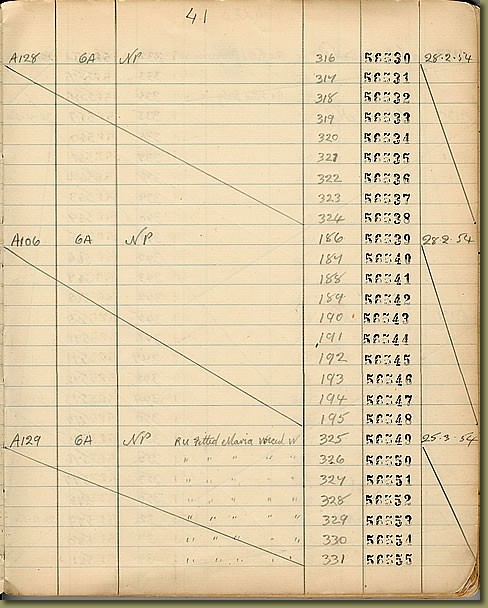 41
A128 GA NP 316 56530 28·2·54
317 56531
318 56532
319 56533
320 56534
321 56535
322 56536
323 56537
324 56538
A106 GA NP 186 56539 28·2·54
187 56540
188 56541
189 56542
190 56543
191 56544
192 56545
193 56546
194 56547
195 56548
A129 GA NP Fitted W 325 56549 25·3·54
" " " " " 326 56550
" " " " " 327 56551
" " " " " 328 56552
" " " " " 329 56553
" " " " " 330 56554
" " " " " 331 56555